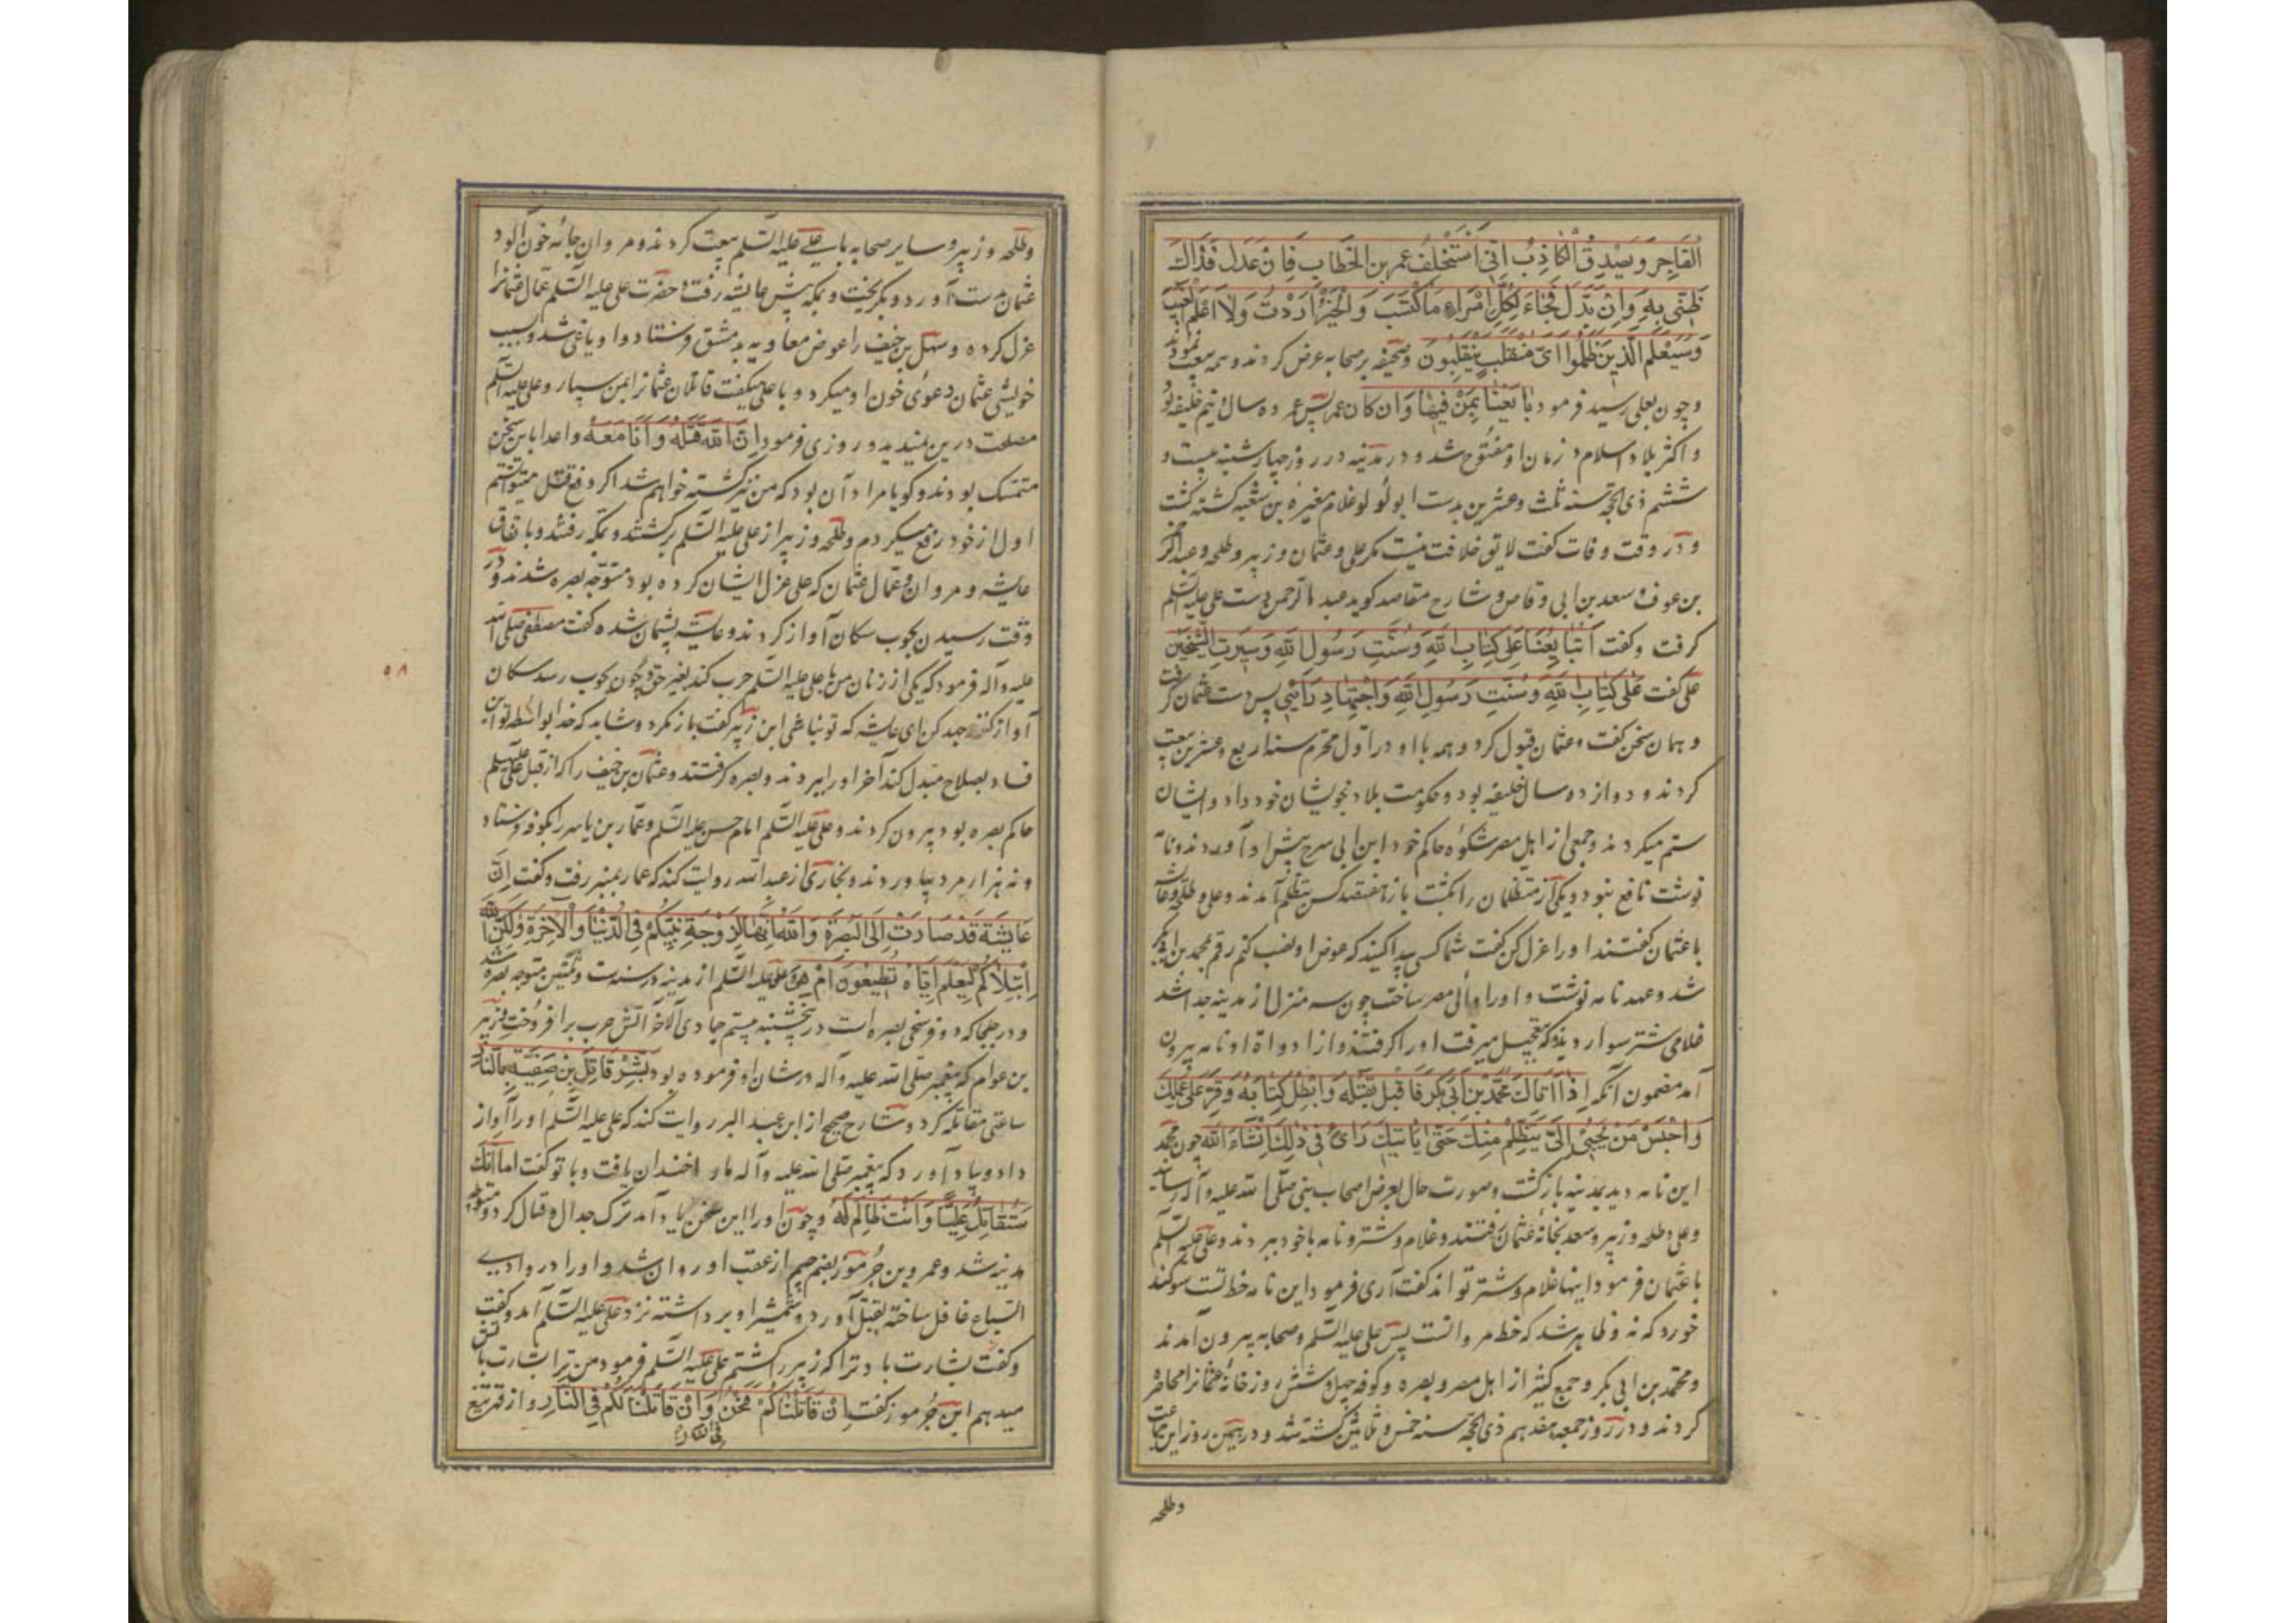 الفاجر ويصدق الكاذب انى استخلف عمر بن الخطاب فان عدل فذاك
ظنى به وان بدل فجاء لكل امراء ما اكتسب والخير اردت ولا اعلم الغيب
وسيعلم الذين ظلموا اى منقلب ينقلبون وصحيفه بر صحابه عرض كردند و همه بيعت نمودند
و چون بعلى رسيد فرمود بايعنا بمن فيها وان كان عمر پس عمر ده سال و نيم خليفه بود
و اكثر بلاد اسلام در زمان او مفتوح شد و در مدينه در روز چهارشنبه بيست و
ششم ذى الحجه سنه ثلث و عشرين بدست ابو لولو غلام مغيره بن شعبه كشته كشت
و در وقت وفات كفت لايق خلافت نيست مكر على و عثمان و زبير و طلحه و عبد الرحمن
بن عوف و سعد بن ابى وقاص و شارح مقاصد كويد عبد الرحمن دست على عليه السلم
كرفت و كفت اتبايعنا على كتاب الله وسنت رسول الله وسيرت الشيخين
على كفت على كتاب الله وسنت رسول الله واجتهاد رائى پس دست عثمان كرفت
و همان سخن كفت و عثمان قبول كرد و همه با او در اول محرم سنه اربع و عشرين بيعت
كردند و دوازده سال خليفه بود و حكومت بلاد بخويشان خود داد و ايشان
ستم ميكردند و جمعى از اهل مصر شكوه حاكم خود ابن ابى سرح پيش او آوردند و نامه
نوشت نافع نبود و يكى از متظلمان را بكشت باز هفتصد كس بتظلم آمدند و على و طلحه و عايشه
با عثمان كفتند او را عزل كن كفت شما كسى پيدا كنيد كه عوض او نصب كنم رقم محمد بن ابى بكر
شد و عهدنامه نوشت و او را والى مصر ساخت چون سه منزل از مدينه جدا شد
غلامى شتر سوار ديد كه بتعجيل ميرفت او را كرفتند و از ادواة او نامه بيرون
آمد مضمون آنكه اذا اتاك محمد بن ابى بكر فاقبل بقتله وابطل كتابه وقر على عملك
واحبس من يجيئ الى يتظلم منك حتى ياتيك رائى فى ذلك انشاء الله چون محمد
اين نامه ديد بمدينه باز كشت و صورت حال بعرض اصحاب نبى صلى الله عليه و آله رسانيد
و على و طلحه و زبير و سعد بخانه عثمان رفتند و غلام و شتر و نامه با خود بردند و على عليه السلم
با عثمان فرمود اينها غلام و شتر تو اند كفت آرى فرمود اين نامه خط تست سوكند
خورد كه نه و ظاهر شد كه خط مروانست پس على عليه السلم و صحابه بيرون آمدند
و محمد بن ابى بكر و جمع كثير از اهل مصر و بصره و كوفه چهل و شش روز خانه عثمانرا محاصره
كردند و در روز جمعه هفدهم ذى الحجه سنه خمس و ثلاثين كشته شد و در همين روز اين جماعت
وطلحه
وطلحه و زبير و ساير صحابه با على عليه السلم بيعت كردند و مروان جامه خون آلود
عثمان بدست آورد و بكريخت و بمكه پيش عايشه رفت و حضرت على عليه السلم عمال عثمانرا
عزل كرده و سهل بن حنيف را عوض معاويه بدمشق فرستاد و او ياغى شد و بسبب
خويشى عثمان دعوى خون او ميكرد و با على ميكفت قاتلان عثمانرا بمن سپار و على عليه السلم
مصلحت درين نميديد و روزى فرمود ان الله قتله وانا معه و اعدا باين سخن
متمسك بودند و كويا مراد آن بود كه من نيز كشته خواهم شد اكر دفع قتل ميتوانستم
اول از خود دفع ميكردم و طلحه و زبير از على عليه السلم بركشتند و بمكه رفتند و باتفاق
عايشه و مروان و عمال عثمان كه على عزل ايشان كرده بود متوجه بصره شدند و در
وقت رسيدن بحوب سكان آواز كردند و عايشه پشيمان شده كفت مصطفى صلى الله
عليه و آله فرمود كه يكى از زنان من با على عليه السلم حرب كند بغير حق و چون بحوب رسد سكان
آواز كنند جهد كن اى عايشه كه تو نباشى ابن زبير كفت باز نكرد و شايد كه خدا بواسطه تو اين
فساد بصلاح مبدل كند آخر او را بردند و بصره كرفتند و عثمان بن حنيف را كه از قبل على عليه السلم
حاكم بصره بود بيرون كردند و على عليه السلم امام حسن عليه السلم و عمار بن ياسر را بكوفه فرستاد
و نه هزار مرد بياوردند و بخارى از عبد الله روايت كند كه عمار بمنبر رفت و كفت ان
عايشة قد صارت الى البصرة والله انها لزوجة نبيكم فى الدنيا والآخرة ولكن الله
ابتلاكم ليعلم اياه تطيعون ام هى و على عليه السلم از مدينه در سنه ست و ثلثين متوجه بصره شد
و در جلجا كه دو فرسخى بصره است در پنجشنبه بيستم جمادى الآخر آتش حرب بر افروخت و زبير
بن عوام كه پيغمبر صلى الله عليه و آله در شان او فرموده بود بشر قاتل بن صفية بالنار
ساعتى مقاتله كرد و شارح صحيح از ابن عبد البر روايت كند كه على عليه السلم او را آواز
داد و بياد آورد كه پيغمبر صلى الله عليه و آله ما را خندان يافت و با تو كفت اما انك
ستقاتل عليا وانت ظالم له و چون او را اين سخن بياد آمد ترك جدال و قتال كرد و متوجه
مدينه شد و عمرو بن جرموز بضم جيم از عقب او روان شد و او را در وادى
السباع غافل ساخته بقتل آورد و شمشير او برداشته نزد على عليه السلم آمد و كفت
و كفت بشارت باد ترا كه زبير را كشتم على عليه السلم فرمود من ترا بشارت باتش
ميدهم ابن جرموز كفت ان قاتلناكم فنحن وان قاتلنا لكم فى النار و از قهر تيغ
فى النار
٥٨